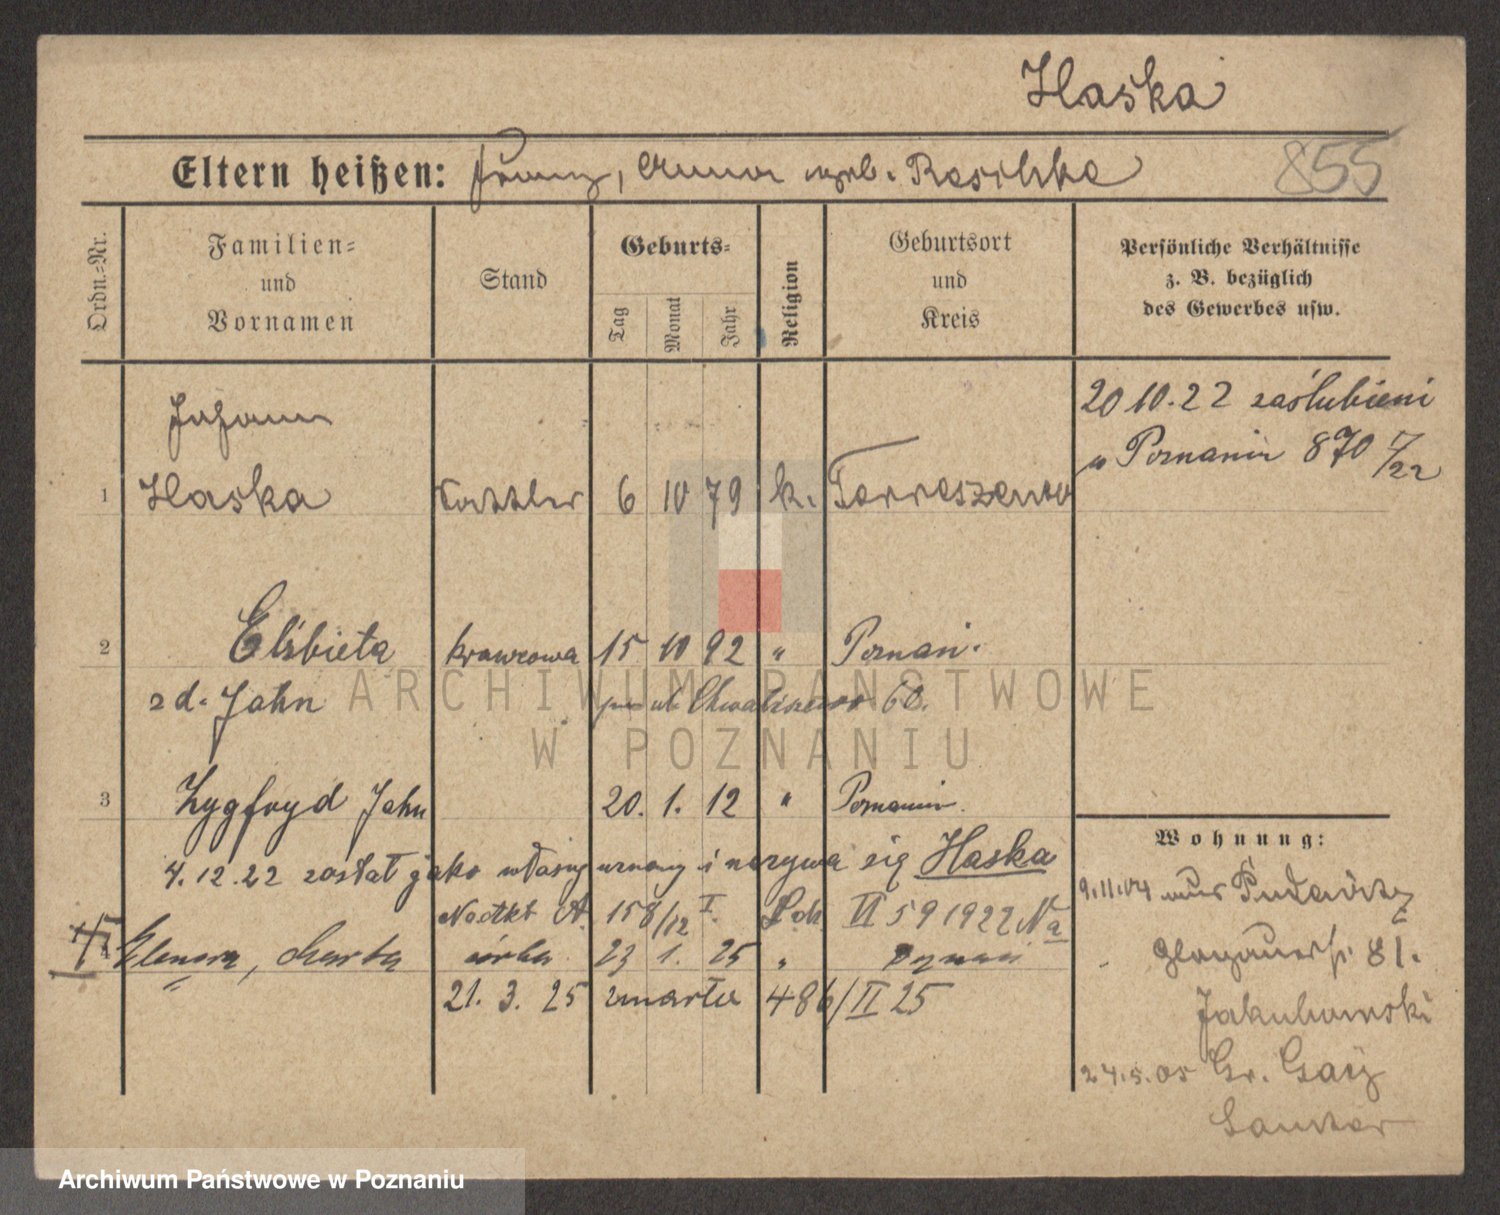 Haska
Eltern heißen: Franz, Anna geb. Raschke
855
Ordn.-Nr.
Familien-
und
Vornamen
Stand
Geburts-
Tag
Monat
Jahr
Religion
Geburtsort
und
Kreis
Persönliche Verhältnisse
z. B. bezüglich
des Gewerbes usw.
20 10. 22 zaślubieni
w Poznaniu 870 7/22
Johann
1 Haska 6 10 79 k.
2 Elżbieta krawcowa 15 10 92 " Poznań.
z d. Jahn ul. Chwaliszewo 60.
3 Zygfryd Jahn 20. 1. 12 " Poznaniu.
4. 12. 22 został jako własny uznany i nazywa się Haska
158/12 I. VI 59 1922
4 Elenora, Marta córka 23 1. 25 " Poznań
21. 3. 25 zmarła 486/II 25
Wohnung:
9.11.04
81.
Jakubowski
24.5.05 Gr.
ARCHIWUM PAŃSTWOWE
W POZNANIU
Archiwum Państwowe w Poznaniu